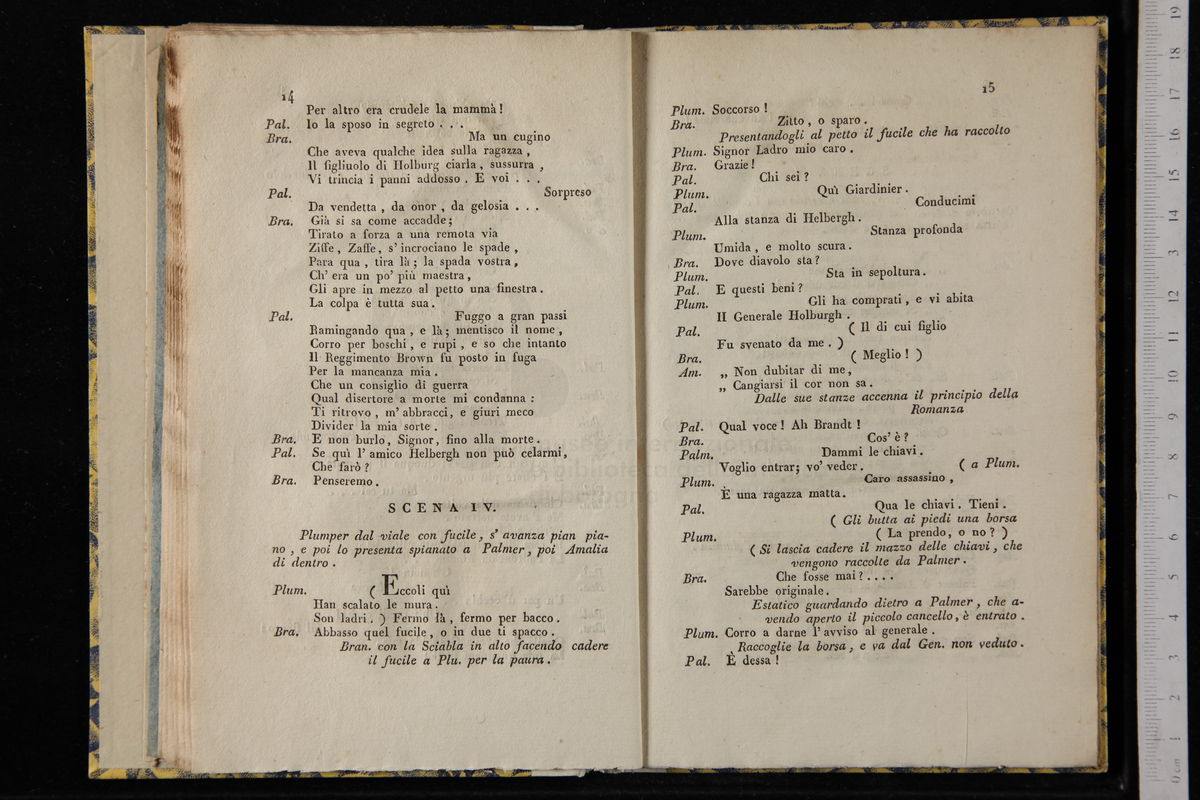 14
Per altro era crudele la mammà!
Pal. Io la sposo in segreto . . .
Bra. Ma un cugino
Che aveva qualche idea sulla ragazza ,
Il figliuolo di Holburg ciarla , sussurra ,
Vi trincia i panni addosso . E voi . . .
Pal. Sorpreso
Da vendetta , da onor , da gelosia . . .
Bra. Già si sa come accade ;
Tirato a forza a una remota via
Ziffe , Zaffe , s' incrociano le spade ,
Para qua , tira là ; la spada vostra ,
Ch' era un po' più maestra ,
Gli apre in mezzo al petto una finestra .
La colpa è tutta sua .
Pal. Fuggo a gran passi
Ramingando qua , e là ; mentisco il nome ,
Corro per boschi , e rupi , e so che intanto
Il Reggimento Brown fu posto in fuga
Per la mancanza mia .
Che un consiglio di guerra
Qual disertore a morte mi condanna :
Ti ritrovo , m' abbracci , e giuri meco
Divider la mia sorte .
Bra. E non burlo , Signor , fino alla morte .
Pal. Se quì l' amico Helbergh non può celarmi,
Che farò ?
Bra. Penseremo .
SCENA IV.
Plumper dal viale con fucile , s' avanza pian pia-
no , e poi lo presenta spianato a Palmer , poi Amalia
di dentro .
Plum. ( Eccoli quì
Han scalato le mura .
Son ladri . ) Fermo là , fermo per bacco .
Bra. Abbasso quel fucile , o in due ti spacco .
Bran. con la Sciabla in alto facendo cadere
il fucile a Plu. per la paura .
15
Plum. Soccorso !
Bra. Zitto , o sparo .
Presentandogli al petto il fucile che ha raccolto
Plum. Signor Ladro mio caro .
Bra. Grazie !
Pal. Chi sei ?
Plum. Quì Giardinier .
Pal. Conducimi
Alla stanza di Helbergh .
Plum. Stanza profonda
Umida , e molto scura .
Bra. Dove diavolo sta ?
Plum. Sta in sepoltura .
Pal. E questi beni ?
Plum. Gli ha comprati , e vi abita
Il Generale Holburgh .
Pal. ( Il di cui figlio
Fu svenato da me . )
Bra. ( Meglio ! )
Am. „ Non dubitar di me ,
„ Cangiarsi il cor non sa .
Dalle sue stanze accenna il principio della
Romanza
Pal. Qual voce ! Ah Brandt !
Bra. Cos' è ?
Palm. Dammi le chiavi .
Voglio entrar; vo' veder . ( a Plum.
Plum. Caro assassino ,
È una ragazza matta .
Pal. Qua le chiavi . Tieni .
( Gli butta ai piedi una borsa
Plum. ( La prendo, o no ? )
( Si lascia cadere il mazzo delle chiavi , che
vengono raccolte da Palmer .
Bra. Che fosse mai ? . . . .
Sarebbe originale .
Estatico guardando dietro a Palmer , che a-
vendo aperto il piccolo cancello , è entrato .
Plum. Corro a darne l' avviso al generale .
Raccoglie la borsa , e va dal Gen. non veduto .
Pal. È dessa !